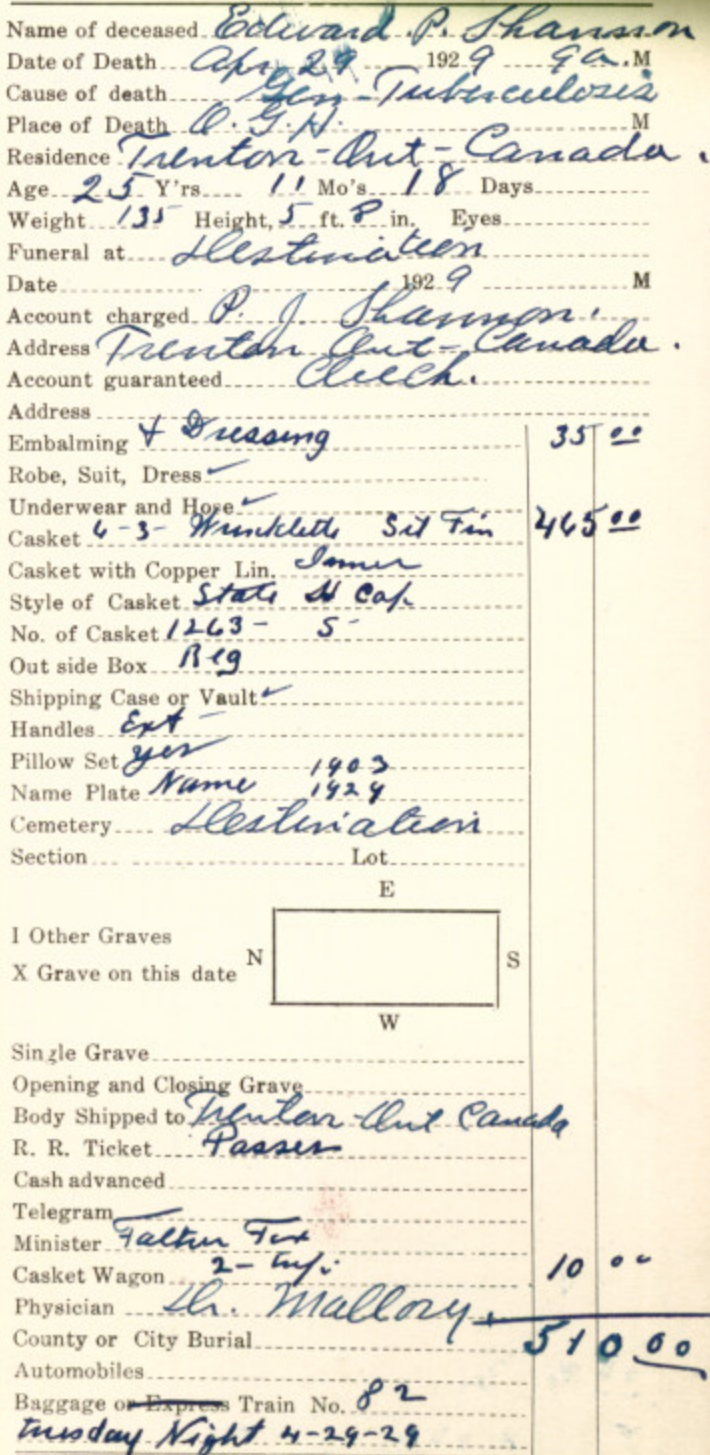 Name of deceased Edward P. Shannon
Date of Death Apr 29 1929 9 a. M
Cause of death Gen-Tuberculosis
Place of Death O. G. H. M
Residence Trenton-Ont-Canada.
Age 25 Y'rs 11 Mo's 18 Days
Weight 135 Height, 5 ft. 8 in. Eyes
Funeral at Destination
Date 1929 M
Account charged P. J. Shannon.
Address Trenton Ont-Canada.
Account guaranteed Check.
Address
Embalming + Dressing 35 00
Robe, Suit, Dress ✓
Underwear and Hose ✓
Casket 6-3- Sil Fin 465 00
Casket with Copper Lin. Inner
Style of Casket State H Cap
No. of Casket 1263- S-
Out side Box Reg
Shipping Case or Vault ✓
Handles Ext -
Pillow Set yes 1903
Name Plate Name 1929
Cemetery Destination
Section Lot
E
I Other Graves
N S
X Grave on this date
W
Single Grave
Opening and Closing Grave
Body Shipped to Trenton-Ont Canada
R. R. Ticket Passes
Cash advanced
Telegram
Minister Father
Casket Wagon 2- 10 00
Physician Dr. Mallory
County or City Burial 510.00
Automobiles
Baggage or Express Train No. 82
tuesday Night 4-29-29